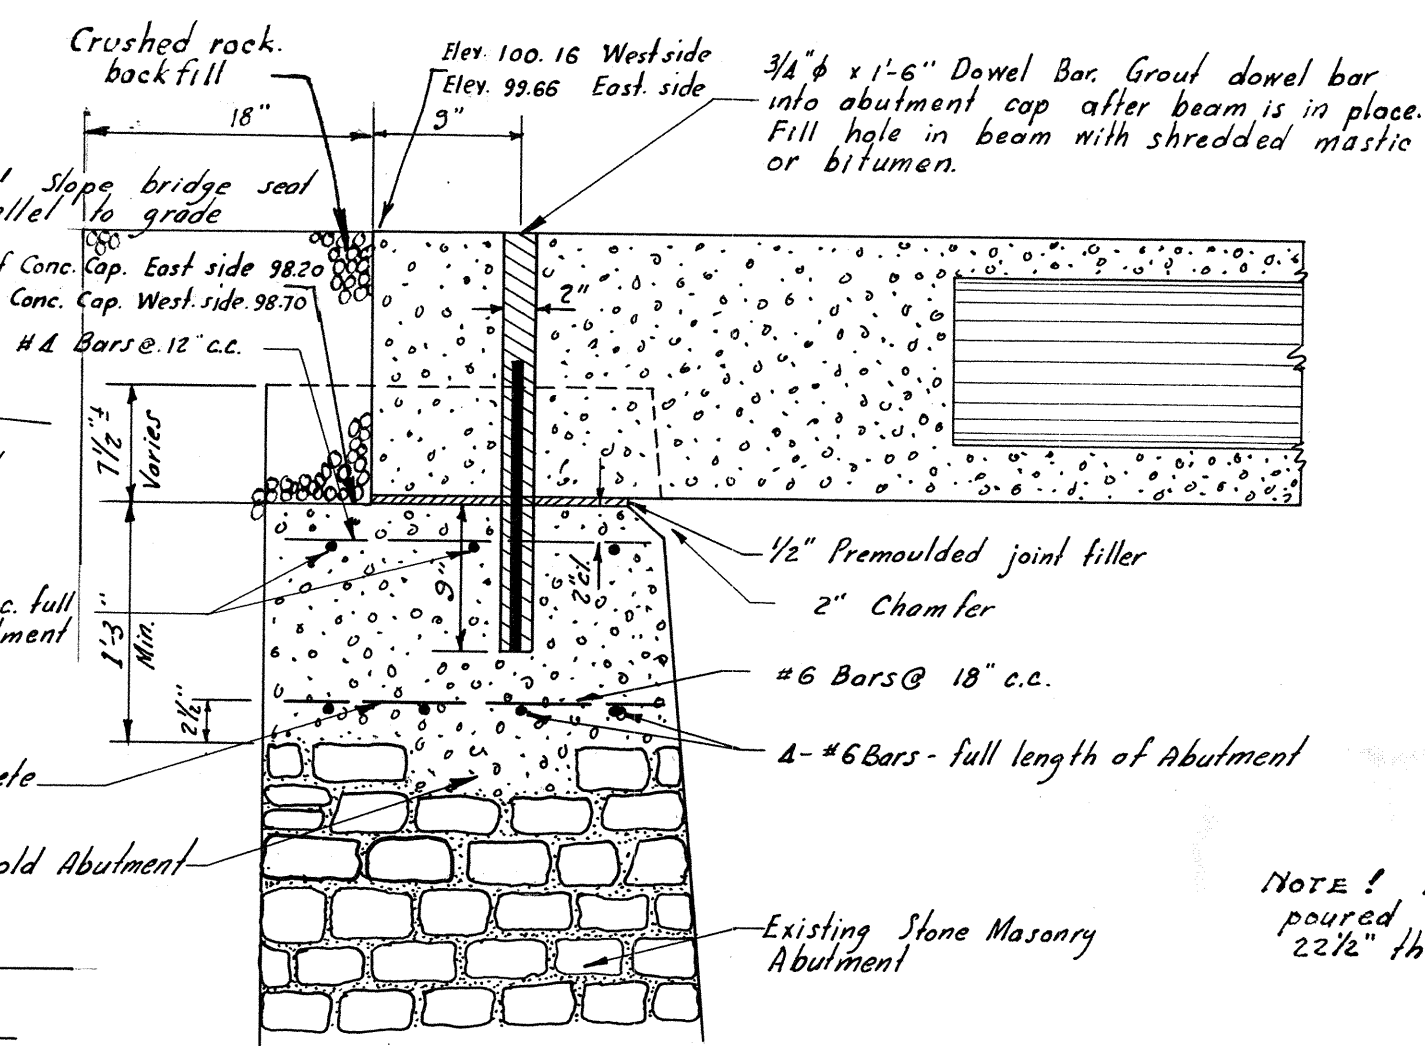 Crushed rock.
backfill
Elev. 100.16 West side
Elev. 99.66 East. side
3/4"ϕ x 1'-6" Dowel Bar. Grout dowel bar
into abutment cap after beam is in place.
Fill hole in beam with shredded mastic
or bitumen.
18"
9"
! Slope bridge seat
llel to grade
f Conc. Cap. East side 98.20
Conc. Cap. West. side. 98.70
#4 Bars @. 12" c.c.
2"
7 1/2" ±
Varies
1/2" Premoulded joint filler
2" Chamfer
c. full
ment
1'-3"
Min.
9"
2"cl.
#6 Bars @ 18" c.c.
2 1/2"
4-#6 Bars - full length of Abutment
ete
old Abutment
Existing Stone Masonry
Abutment
NOTE!
poured
22 1/2" th